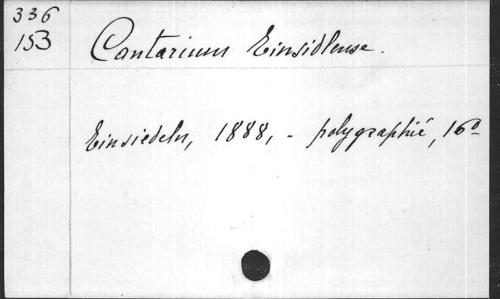 336
153
Cantarium Einsidlense.
Einsiedeln, 1888, - polygraphié, 16º